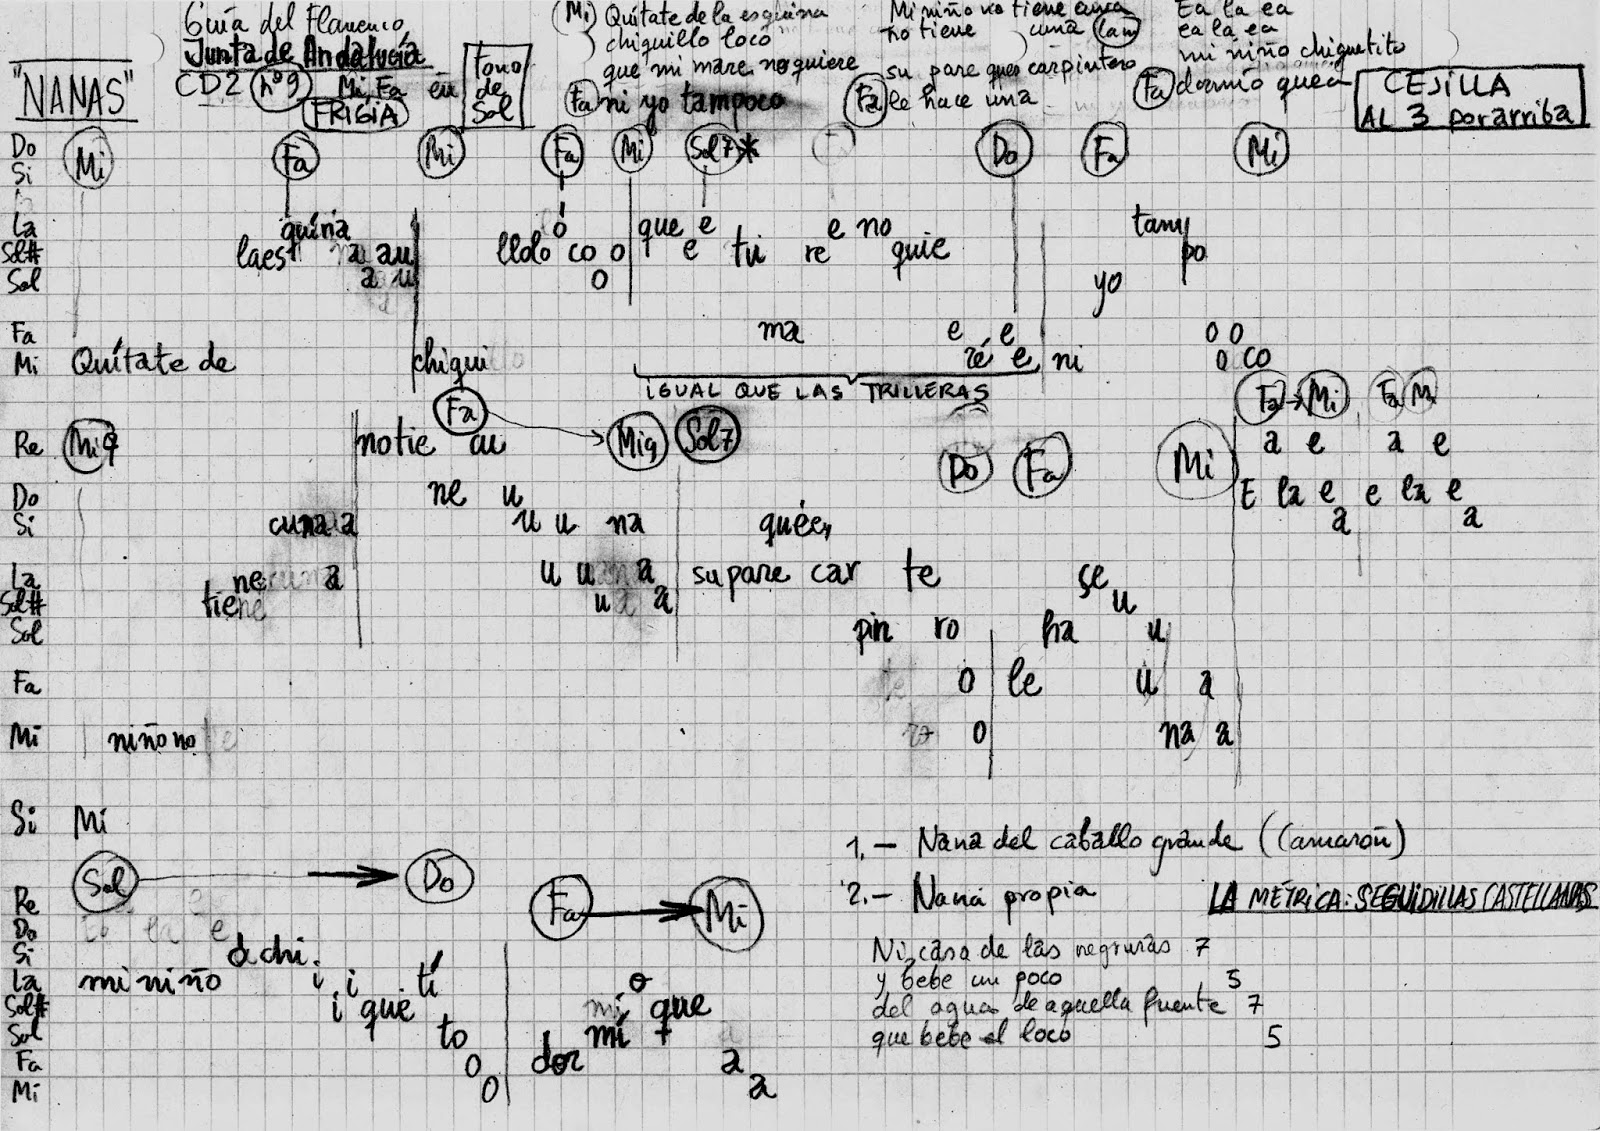 Guía del Flamenco
Junta de Andalucía
"NANAS"
CD2 nº9 Mi, Fa en
FRIGIA
tono
de
Sol
(Mi) Quítate de la esquina
chiquillo loco
que mi mare no quiere
(Fa) ni yo tampoco
Mi niño no tiene cuna
no tiene cuna (lam)
su pare que es carpintero
(Fa) le hace una
Ea la ea
ea la ea
mi niño chiquetito
(Fa) dormío quea
CEJILLA
AL 3 por arriba
Do Mi Fa Mi Fa Mi Sol7* Do Fa Mi
Si
La quina o que e e no tam
Sol# laes na au llolo co o e tu re quie po
Sol a u o yo
Fa ma e e o o
Mi Quítate de chiqui ré e ni o co
IGUAL QUE LAS TRILLERAS
Fa → Mi Fa Mi
Fa
Re Mi9 notie cu Mi9 Sol7 Do Fa Mi a e a e
Do ne u E la e e la e
Si cuna a u u na quées a a
La ne a u u a supare car te se
Sol# tie u a a u
Sol pin ro ha u
Fa o le u a
Mi niño no o na a
Si Mi
Sol → Do
Fa → Mi
Re
Do
Si o chi
La mi niño i i tí o
Sol# i que que
Sol to mí
Fa o dor a
Mi o a
1.- Nana del caballo grande (Camarón)
2.- Nana propia
LA MÉTRICA: SEGUIDILLAS CASTELLANAS
Ni casa de las negruras 7
y bebe un poco 5
del agua de aquella fuente 7
que bebe el loco 5